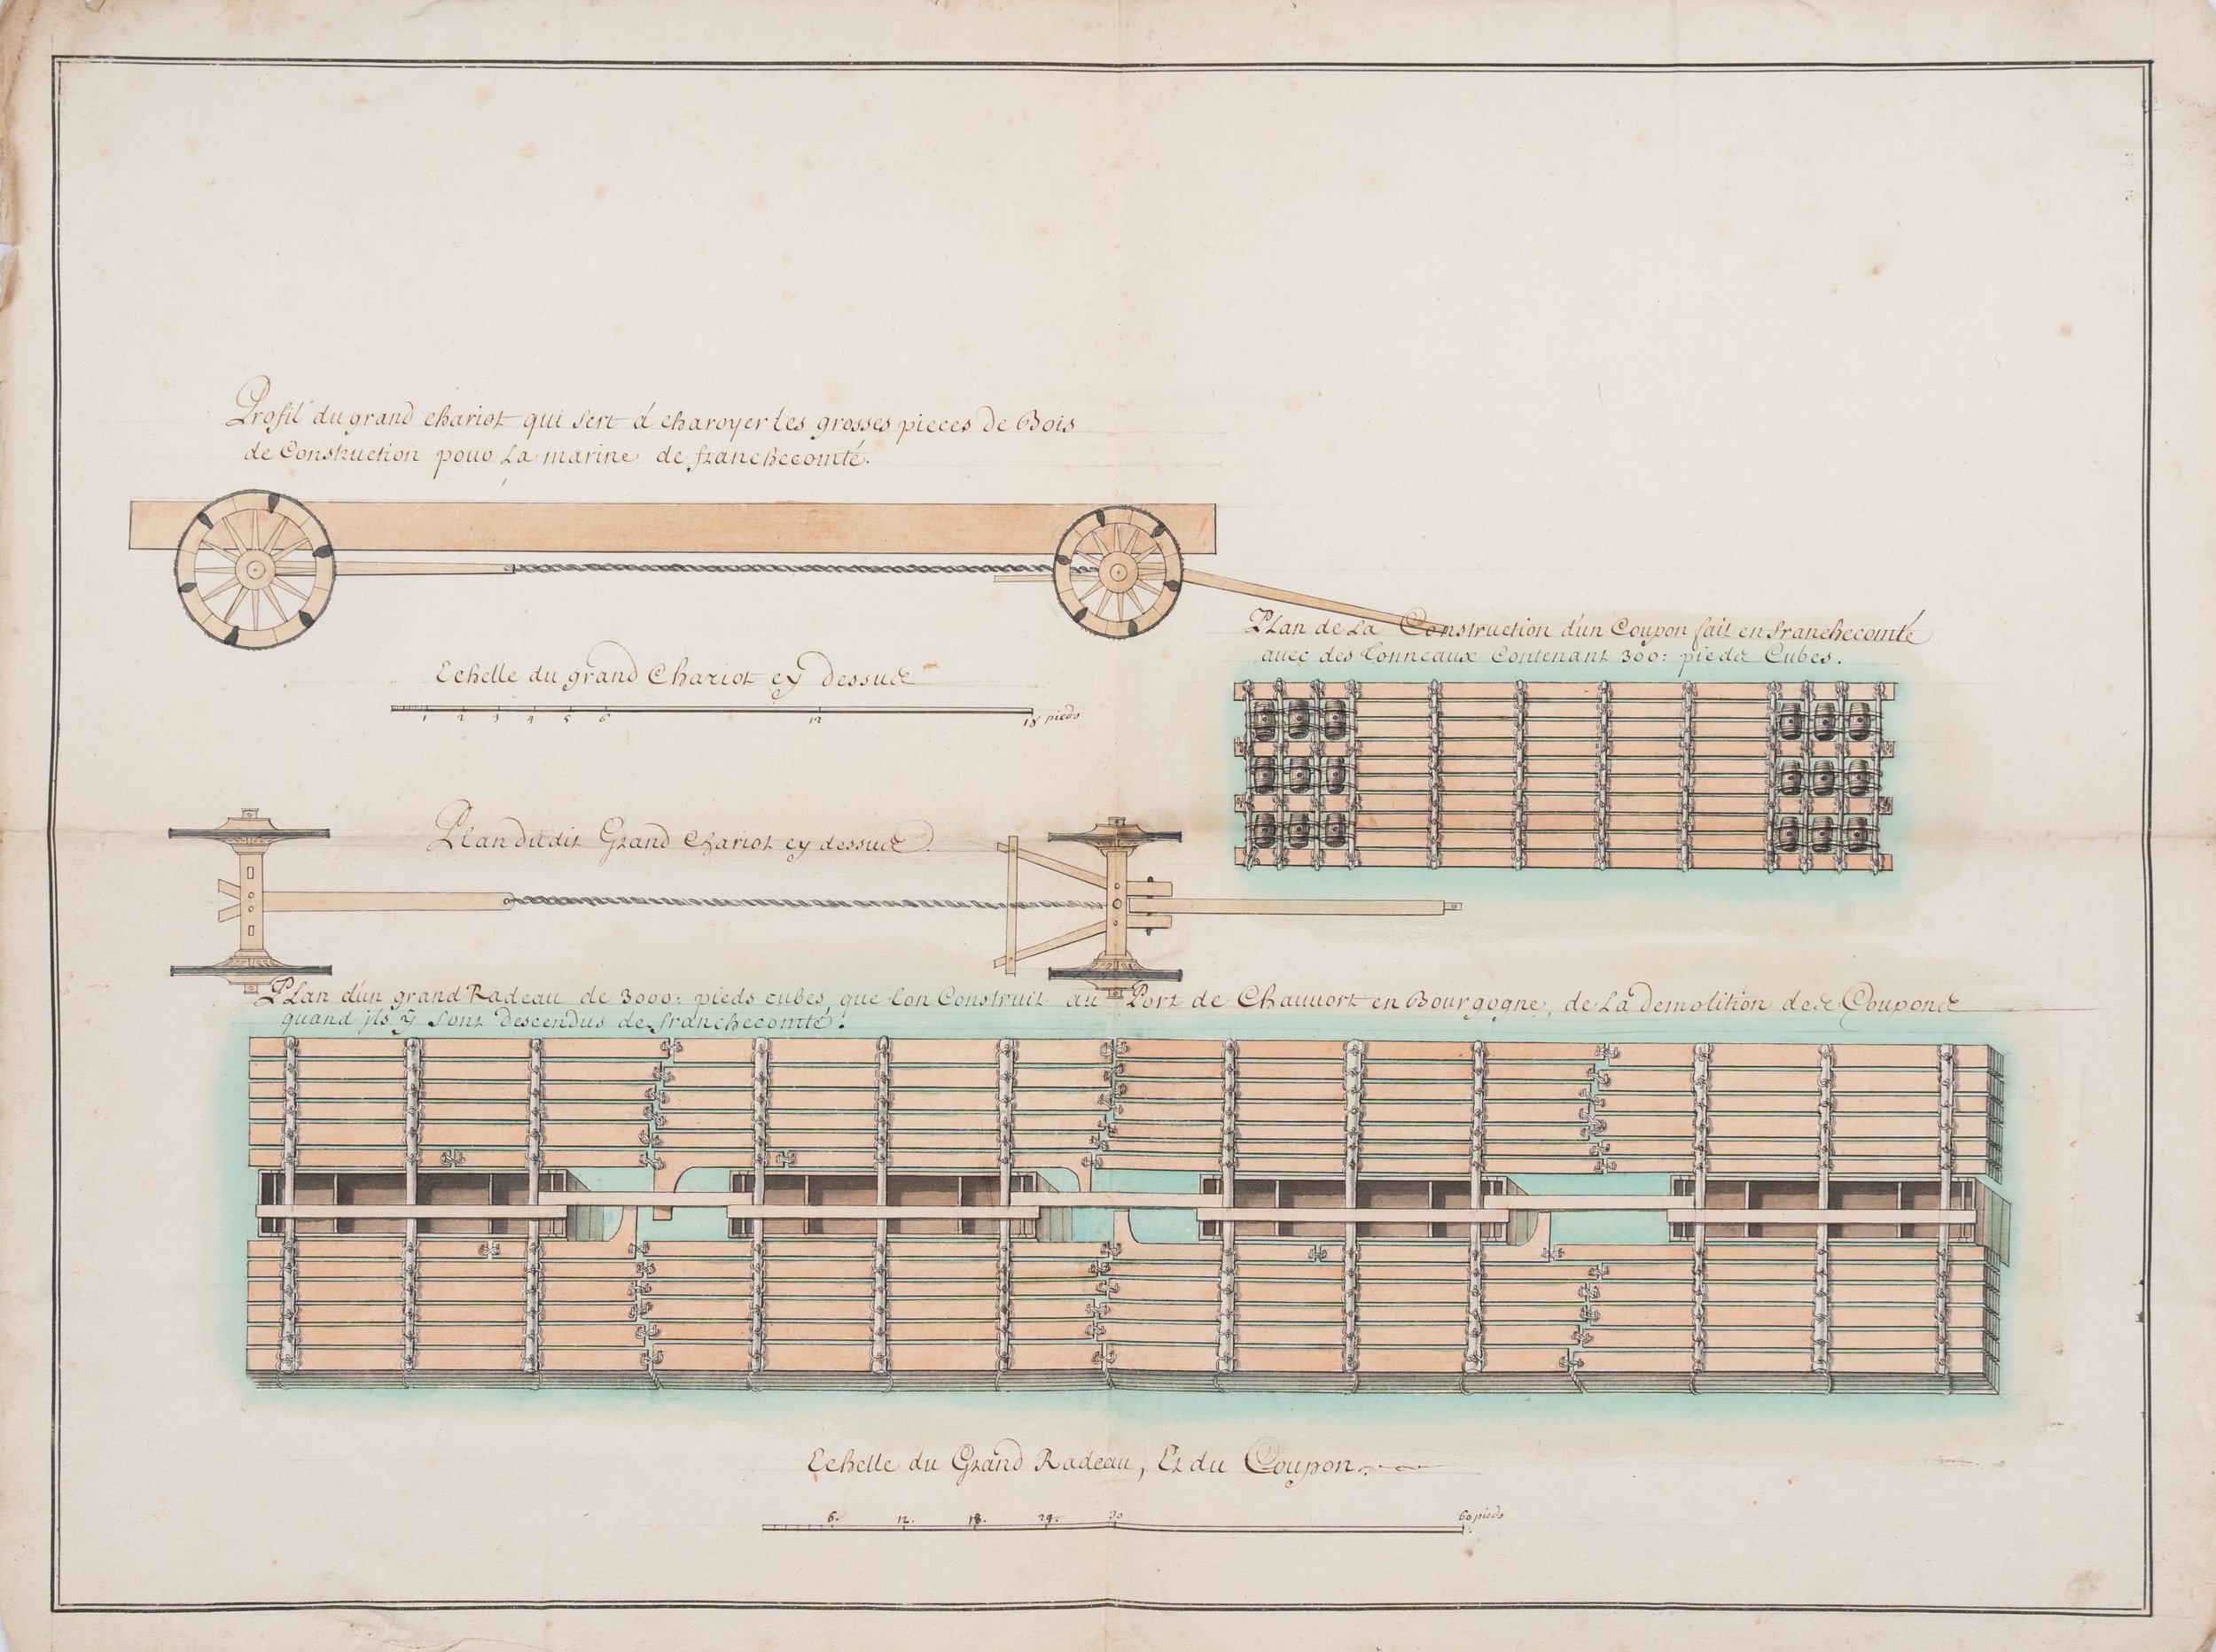 Profil du grand chariot qui sert à charoyer les grosses pieces de Bois
de Construction pour La marine de franchecomté.
Echelle du grand Chariot cy dessus
1 2 3 4 5 6 12 18 pieds
Plan de La Construction d'un Coupon fait en franchecomté
avec des Tonneaux Contenant 300: pieds Cubes.
Plan dudit Grand Chariot cy dessus.
Plan d'un grand Radeau de 3000: pieds cubes, que lon Construit au Port de Chauvort en Bourgogne, de La demolition des Coupons
quand jls y sont descendus de franchecomté.
Echelle du Grand Radeau, Et du Coupon.
6. 12. 18. 24. 30 60 pieds